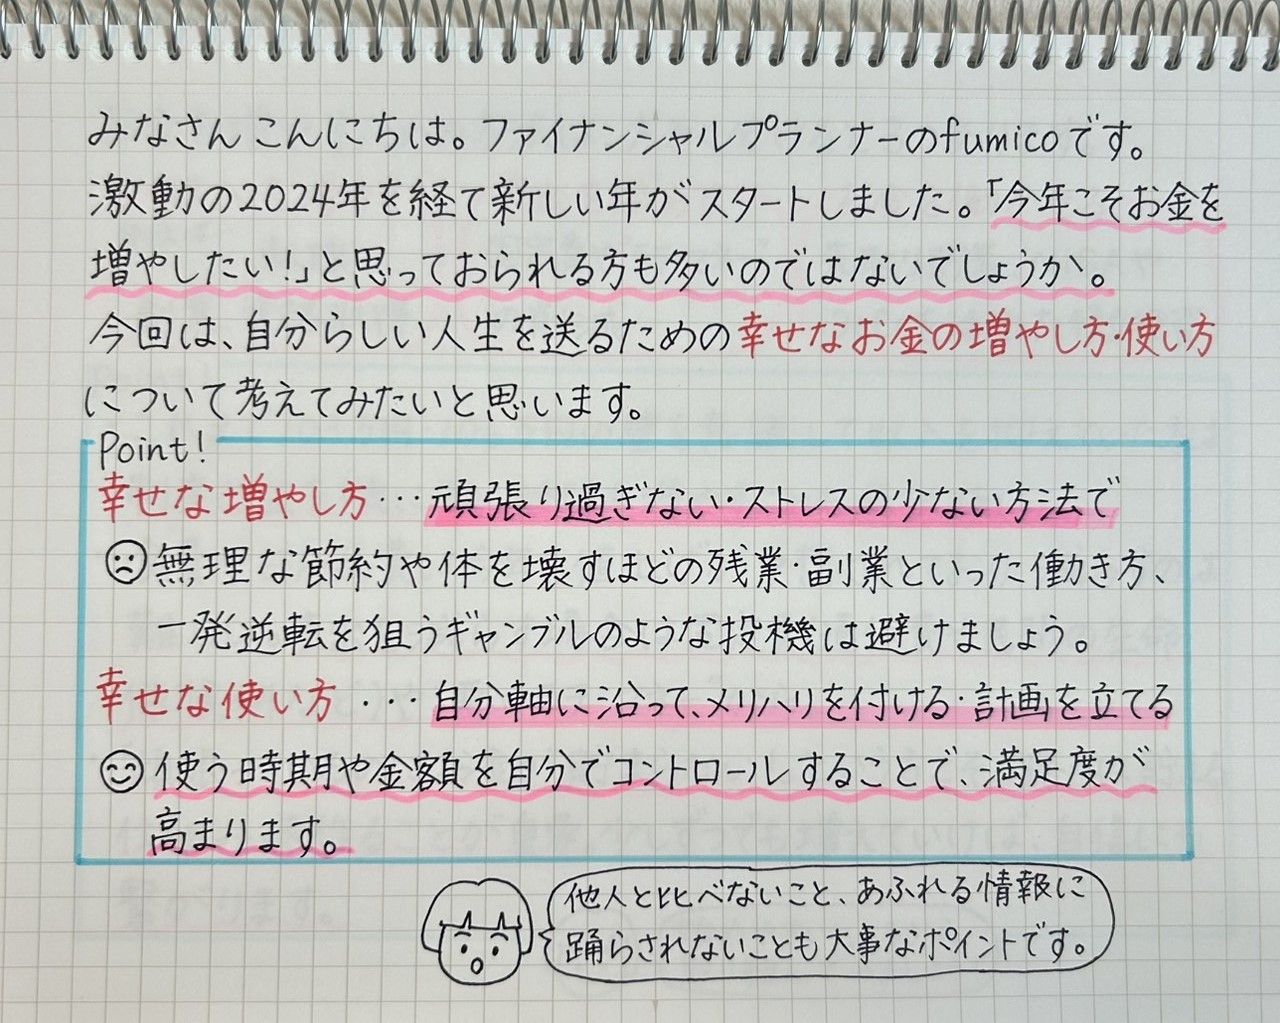 みなさん こんにちは。ファイナンシャルプランナーのfumicoです。
激動の2024年を経て新しい年がスタートしました。「今年こそお金を
増やしたい!」と思っておられる方も多いのではないでしょうか。
今回は、自分らしい人生を送るための幸せなお金の増やし方・使い方
について考えてみたいと思います。
Point!
幸せな増やし方…頑張り過ぎない・ストレスの少ない方法で
無理な節約や体を壊すほどの残業・副業といった働き方、
一発逆転を狙うギャンブルのような投機は避けましょう。
幸せな使い方…自分軸に沿って、メリハリを付ける・計画を立てる
使う時期や金額を自分でコントロールすることで、満足度が
高まります。
他人と比べないこと、あふれる情報に
踊らされないことも大事なポイントです。